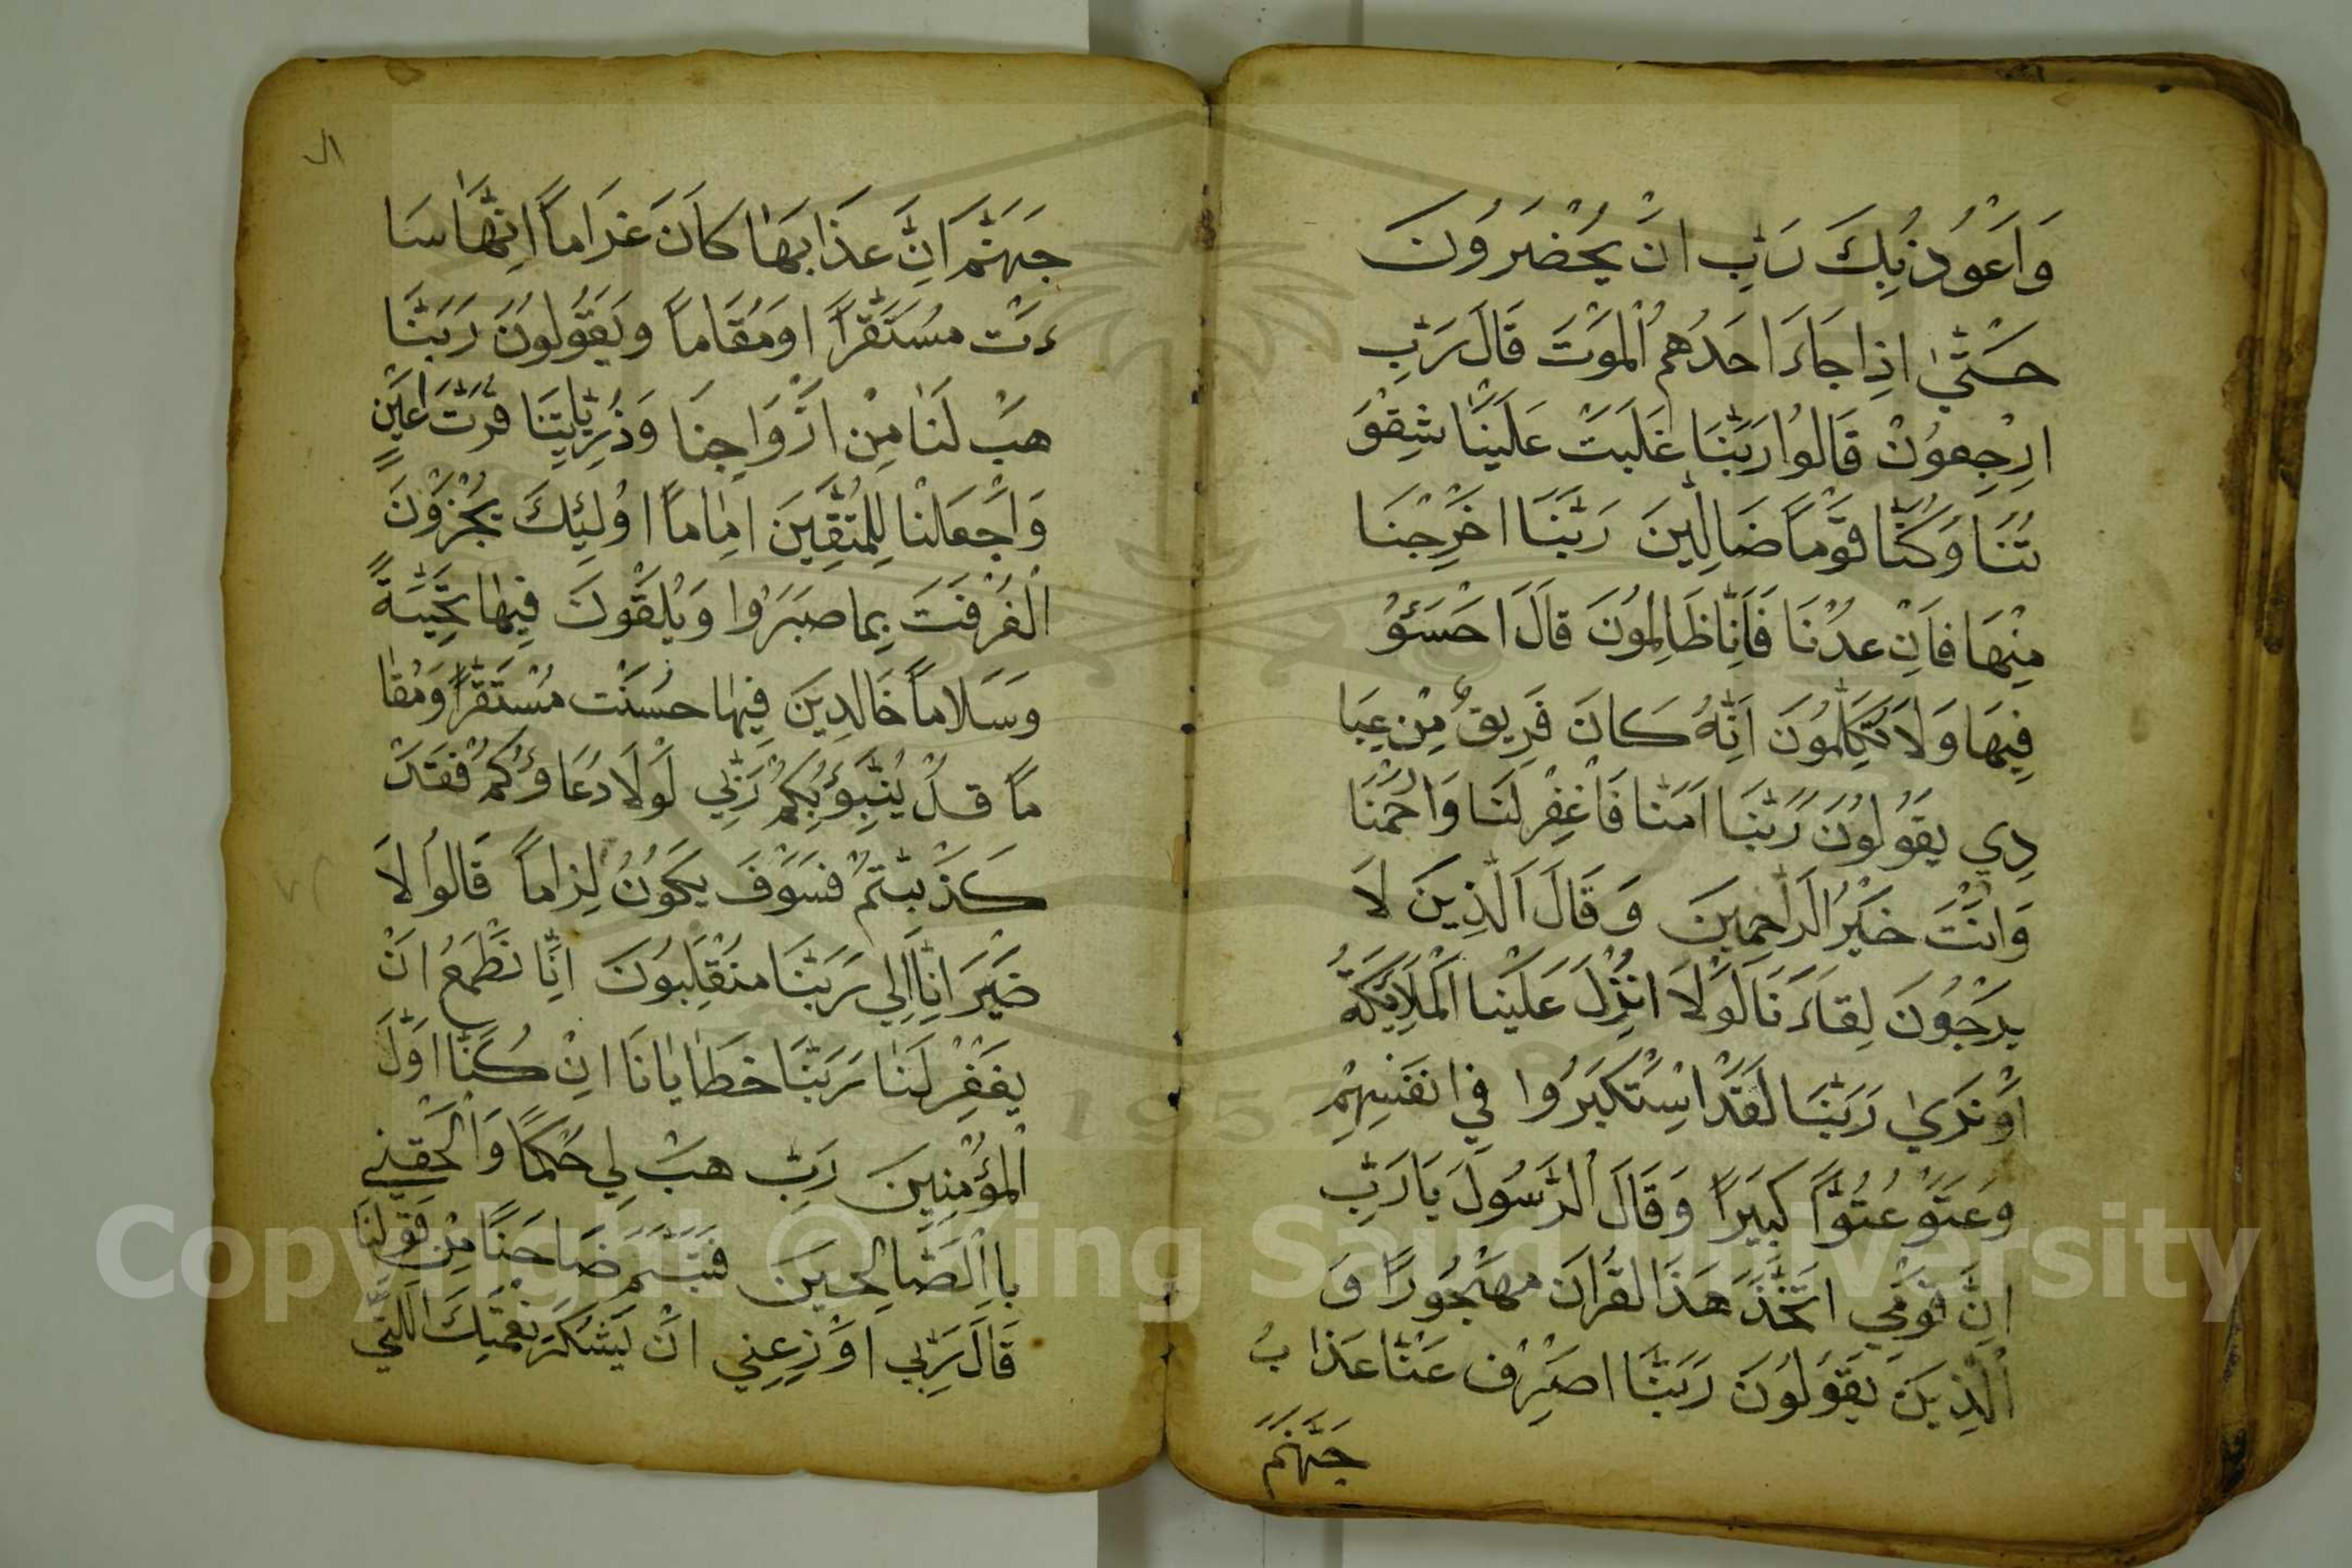 وَاَعُوذُ بِكَ رَبِّ اَنْ يَحْضُرُونَ
حَتّٰي اِذَا جَاءَ اَحَدَهُمُ الْمَوْتَ قَالَ رَبِّ
ارْجِعُونْ قَالُوا رَبَّنَا غَلَبَتْ عَلَيْنَا شِقْوَ
تُنَا وَكُنَّا قَوْماً ضَالِّينَ رَبَّنَا اَخْرِجْنَا
مِنْهَا فَاِنْ عُدْنَا فَاِنَّا ظَالِمُونَ قَالَ احْسَئُوْ
فِيهَا وَلَا تُكَلِّمُونَ اَنَّهُ كَانَ فَرِيقٌ مِنْ عِبَا
دِي يَقُولُونَ رَبَّنَا اَمَنَّا فَاغْفِرْ لَنَا وَارْحَمْنَا
وَاَنْتَ خَيْرُ الرَّاحِمِينَ وَقَالَ الَّذِينَ لَا
يَرْجُونَ لِقَاءَنَا لَوْلَا اُنْزِلَ عَلَيْنَا الْمَلَائِكَةُ
اَوْ نَرَيٰ رَبَّنَا لَقَدْ اسْتَكْبَرُوا فِي انَفْسِهِمْ
وَعَتَوْ عُتُوًّا كَبِيَراً وَقَالَ الرَّسُولَ يَا رَبِّ
اِنَّ قَوْمِي اتَّخَذَ هَذَا لقُرْاَنَ مَهْجُورًا وَ
الَّذِينَ يَقُولُونَ رَبَّنَا اصْرِفْ عَنَّا عَذَابُ
جَهَنَّمَ
١١
جَهَنَّمَ اِنَّ عَذَابَهَا كَانَ غَرَاماً اِنَّهَا سَا
ءَتْ مُسْتَقَرًّا اومُقَاماً وَيَقُولُونَ رَبَّنَا
هَبْ لَنَا مِنْ اَزْوَاجِنَا وَذُرِّيَّاتِنَا قُرَّتَ اَعْيَنٍ
وَاجْعَلْنَا لِلْمُتَّقِينَ اِمَاماً اوُلٰئِكَ يُجْزَوْنَ
الْغُرْفَتَ بِمَا صَبَرُوا وَيُلَقَّوْنَ فِيهَا تَحِيَّةً
وَسَلَاماً خَالِدِينَ فِيهَا حَسُنَتْ مُسْتَقَرًّا وَمُقَا
مًا قُلْ يُنَبِّؤُبِكُمْ رَبِّي لَوْلَا دُعَاؤُكُمْ فَقَدْ
كَذَّبْتُمْ فَسَوْفَ يَكُونُ لِزاماً قَالُوا لَا
ضَيْرَ اِنَّا اِلَي رَبَّنَا مُنْقَلِبُونَ اِنَّا نَطْمَعُ اَنْ
يَغْفِرْ لَنَا رَبَّنَا خَطَايَانَا اِنْ كُنَّا اَوَّلَ
الْمُؤْمِنِينَ رَبِّ هَبْ لِي حُكْماً وَالْحَقْنِي
بِاالصَّالِحِينَ فَتَبَسَّمَ ضَاحِكاً مِنْ قَوْلِنَا
قَالَ رَبِّي اَوْزِعْنِي اَنْ لَيَشْكُرَ نِعْمَتِكَ اللَّتِي
Copyright © King Saud University
1957